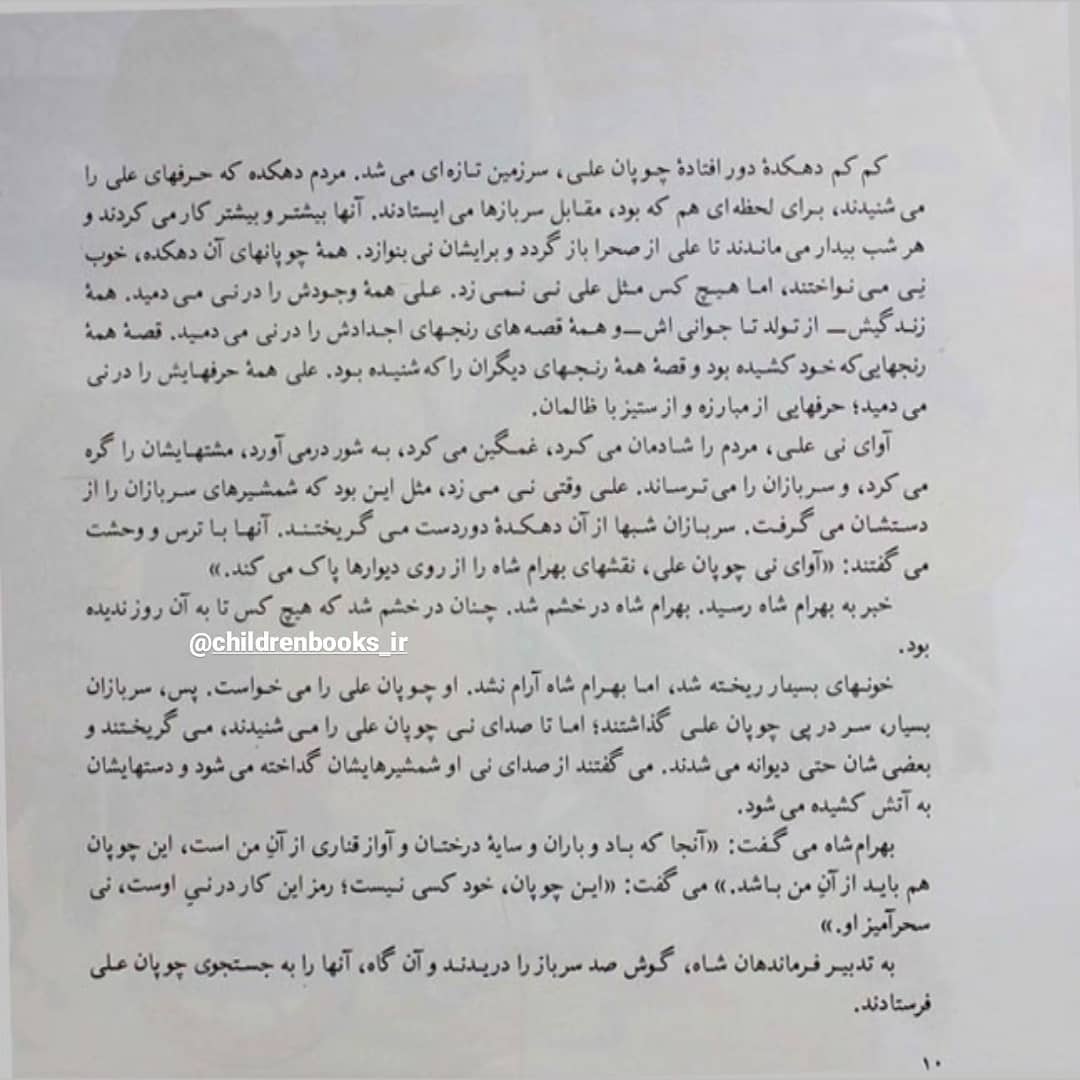 کم کم دهکدهٔ دور افتادهٔ چوپان علی، سرزمین تازه‌ای می شد. مردم دهکده که حرفهای علی را
می شنیدند، برای لحظه‌ای هم که بود، مقابل سربازها می ایستادند. آنها بیشتر و بیشتر کار می کردند و
هر شب بیدار می ماندند تا علی از صحرا باز گردد و برایشان نی بنوازد. همهٔ چوپانهای آن دهکده، خوب
نِی می نواختند، اما هیچ کس مثل علی نی نمی زد. علی همهٔ وجودش را در نی می دمید. همهٔ
زندگیش — از تولد تا جوانی اش — و همهٔ قصه های رنجهای اجدادش را در نی می دمید. قصهٔ همهٔ
رنجهایی که خود کشیده بود و قصهٔ همهٔ رنجهای دیگران را که شنیده بود. علی همهٔ حرفهایش را در نی
می دمید؛ حرفهایی از مبارزه و از ستیز با ظالمان.
آوای نی علی، مردم را شادمان می کرد، غمگین می کرد، به شور درمی آورد، مشتهایشان را گره
می کرد، و سربازان را می ترساند. علی وقتی نی می زد، مثل این بود که شمشیرهای سربازان را از
دستشان می گرفت. سربازان شبها از آن دهکدهٔ دوردست می گریختند. آنها با ترس و وحشت
می گفتند: «آوای نی چوپان علی، نقشهای بهرام شاه را از روی دیوارها پاک می کند.»
خبر به بهرام شاه رسید. بهرام شاه در خشم شد. چنان در خشم شد که هیچ کس تا به آن روز ندیده
بود.
@childrenbooks_ir
خونهای بسیار ریخته شد، اما بهرام شاه آرام نشد. او چوپان علی را می خواست. پس، سربازان
بسیار، سر در پی چوپان علی گذاشتند؛ اما تا صدای نی چوپان علی را می شنیدند، می گریختند و
بعضی شان حتی دیوانه می شدند. می گفتند از صدای نی او شمشیرهایشان گداخته می شود و دستهایشان
به آتش کشیده می شود.
بهرام‌شاه می گفت: «آنجا که باد و باران و سایهٔ درختان و آواز قناری از آنِ من است، این چوپان
هم باید از آنِ من باشد.» می گفت: «این چوپان، خود کسی نیست؛ رمز این کار در نیِ اوست، نی
سحرآمیز او.»
به تدبیر فرماندهان شاه، گوش صد سرباز را دریدند و آن گاه، آنها را به جستجوی چوپان علی
فرستادند.
۱۰